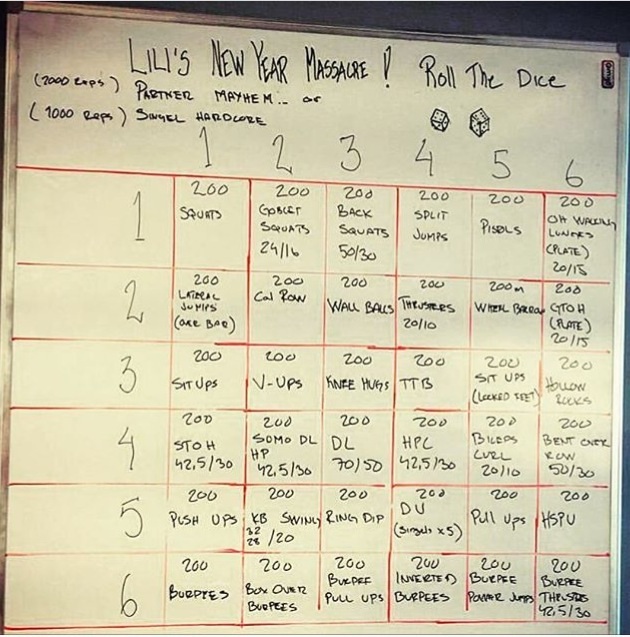 LILI'S NEW YEAR MASSACRE! ROLL THE DICE
(2000 REPS) PARTNER MAYHEM... OR
(1000 REPS) SINGEL HARDCORE
1 2 3 4 5 6
1
200 SQUATS
200 GOBLET SQUATS 24/16
200 BACK SQUATS 50/30
200 SPLIT JUMPS
200 PISOLS
200 OH WALKING LUNGES (PLATE) 20/15
2
200 LATERAL JUMPS (OVER BAR)
200 Cal ROW
200 WALL BALLS
200 THRUSTERS 20/10
200m WHEEL BARROW
200 GTOH (PLATE) 20/15
3
200 SIT UPS
200 V-UPS
200 KNEE HUGS
200 TTB
200 SIT UPS (LOCKED FEET)
200 HOLLOW ROCKS
4
200 STOH 42,5/30
200 SUMO DL HP 42,5/30
200 DL 70/50
200 HPC 42,5/30
200 BICEPS CURL 20/10
200 BENT OVER ROW 50/30
5
200 PUSH UPS
200 KB SWING 32 28 /20
200 RING DIP
200 DU (Singels x5)
200 Pull Ups
200 HSPU
6
200 BURPEES
200 BOX OVER BURPEES
200 BURPEE PULL UPS
200 INVERTED BURPEES
200 BURPEE POWER JUMPS
200 BURPEE THRUSTERS 42,5/30